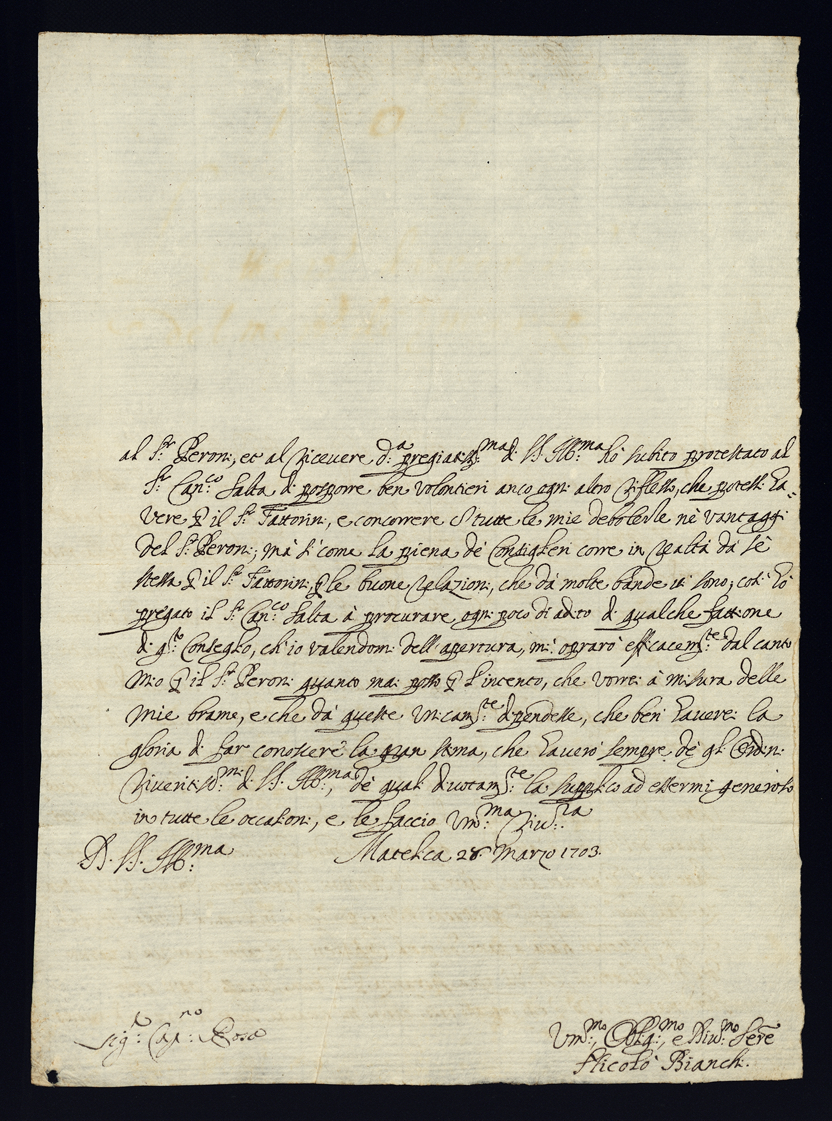 al S.r Peroni, et al ricevere d.a pregiatiss.ma di V.S. Ill.ma hò subito protestato al
S.r Can.co Salta di posporre ben volontieri anco ogni altro riflesso, che potessi ha-
vere p il S.r Fattorini, e concorrere tutte le mie debolezze nè vantaggi
del S.r Peroni, mà si come la piena de Consiglieri corre in realtà da se
stessa p il S.r Fattorini, p le buone relazioni, che dà molte bande vi sono, così hò
pregato il S.r Can.co Salta à procurare ogni poco di adito di qualche fattione
di q.sto Conseglio, ch'io valendomi dell'apertura, mi oprarò efficacem.te dal canto
mio p il S.r Peroni quanto mai posso p l'incento, che vorrei à misura delle
mie brame, e che dà queste unicam.te dipendesse, che ben haverei la
gloria di far conoscere la gran stima, che haverò sempre de gl'Ordini
riveritiss.mi di V.S. Ill.ma, de quali divotam.te la supplico ad essermi generoso
in tutte le occasioni, e le faccio um.ma riv.za
Di V.S. Ill.ma Matelica 28 Marzo 1703.
Sig.r Cap.no Rosa
Um.mo, Oblig.mo, e Div.mo Ser.re
Nicolò Bianchi